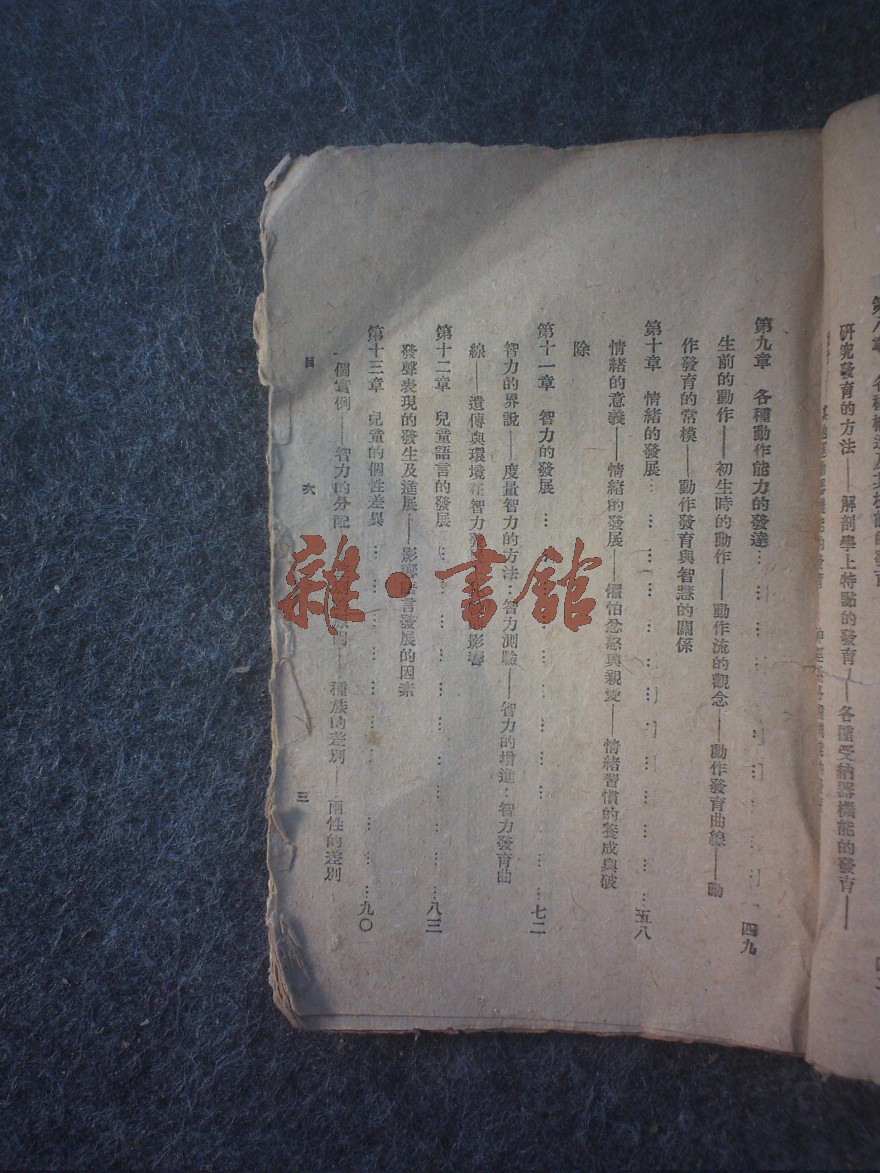 研究發育的方法——解剖學上特點的發育——各種受納器機能的發育——
第九章　各種動作能力的發達…………四九
生前的動作——初生時的動作——動作流的觀念——動作發育曲線——動
作發育的常模——動作發育與智慧的關係
第十章　情緒的發展…………五八
情緒的意義——情緒的發展——懼怕忿怒與親愛——情緒習慣的養成與破
除
第十一章　智力的發展…………七二
智力的界說——度量智力的方法：智力測驗——智力的增進：智力發育曲
線——遺傳與環境在智力發影響
第十二章　兒童語言的發展…………八三
發聲表現的發生及進展——影響語言發展的因素
第十三章　兒童的個性差異…………九〇
個實例——智力的分配——種族的差別——兩性的差別
目　次　三
雜·書館